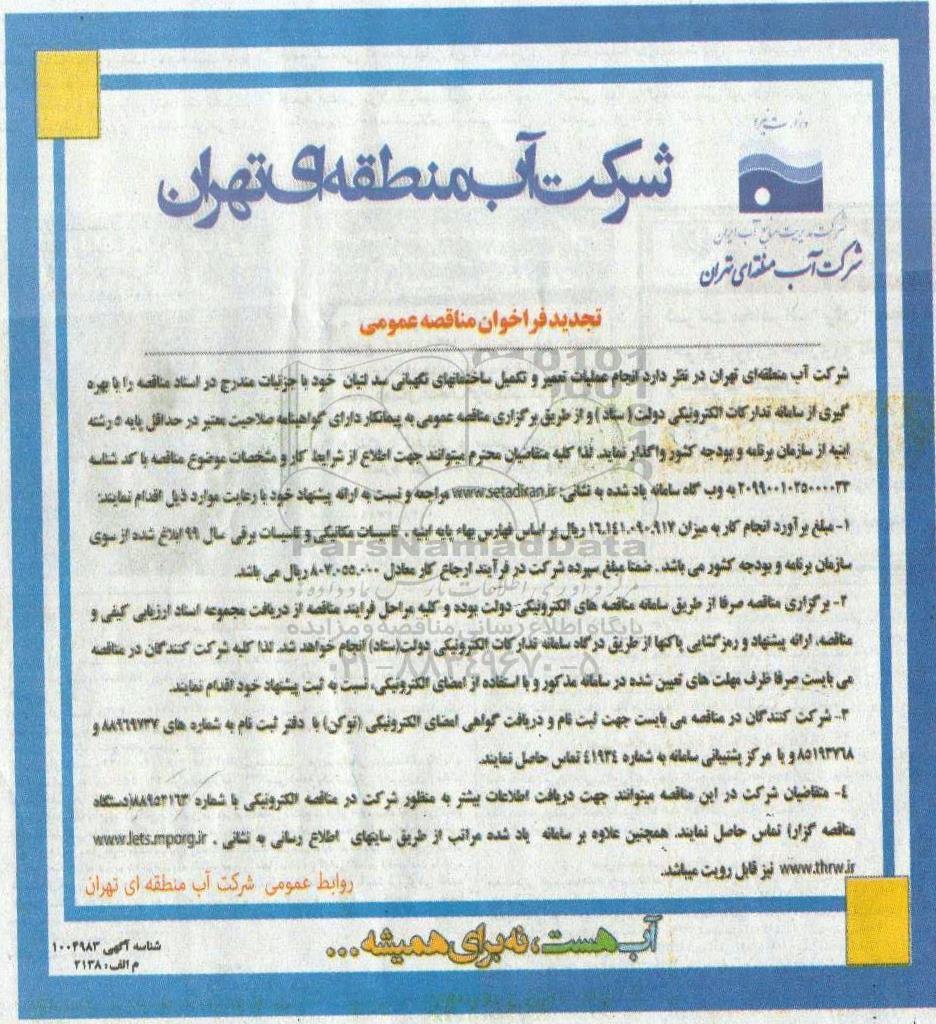 وزارت نیرو
شرکت آب منطقه‌ای تهران
شرکت مدیریت منابع آب ایران
شرکت آب منطقه‌ای تهران
تجدید فراخوان مناقصه عمومی
شرکت آب منطقه‌ای تهران در نظر دارد انجام عملیات تعمیر و تکمیل ساختمانهای نگهبانی سد لتیان خود با جزئیات مندرج در اسناد مناقصه را با بهره
گیری از سامانه تدارکات الکترونیکی دولت ( ستاد ) و از طریق برگزاری مناقصه عمومی به پیمانکار دارای گواهینامه صلاحیت معتبر در حداقل پایه ۵ رشته
ابنیه از سازمان برنامه و بودجه کشور واگذار نماید. لذا کلیه متقاضیان محترم میتوانند جهت اطلاع از شرایط کار و مشخصات موضوع مناقصه با کد شناسه
۲۰۹۹۰۰۱۰۲۵۰۰۰۰۳۳ به وب گاه سامانه یاد شده به نشانی: www.setadiran.ir مراجعه و نسبت به ارائه پیشنهاد خود با رعایت موارد ذیل اقدام نمایند:
۱- مبلغ برآورد انجام کار به میزان ۱۶،۱۴۱،۰۹۰،۹۱۷ ریال بر اساس فهارس بهاء پایه ابنیه ، تاسیسات مکانیکی و تاسیسات برقی سال ۹۹ ابلاغ شده از سوی
سازمان برنامه و بودجه کشور می باشد . ضمنا مبلغ سپرده شرکت در فرآیند ارجاع کار معادل ۸۰۷،۰۵۵،۰۰۰ ریال می باشد.
۲- برگزاری مناقصه صرفا از طریق سامانه مناقصه های الکترونیکی دولت بوده و کلیه مراحل فرایند مناقصه از دریافت مجموعه اسناد ارزیابی کیفی و
مناقصه، ارائه پیشنهاد و رمزگشایی پاکتها از طریق درگاه سامانه تدارکات الکترونیکی دولت(ستاد) انجام خواهد شد. لذا کلیه شرکت کنندگان در مناقصه
می بایست صرفا ظرف مهلت های تعیین شده در سامانه مذکور و با استفاده از امضای الکترونیکی، نسبت به ثبت پیشنهاد خود اقدام نمایند.
۳- شرکت کنندگان در مناقصه می بایست جهت ثبت نام و دریافت گواهی امضای الکترونیکی (توکن) با دفتر ثبت نام به شماره های ۸۸۹۶۹۷۳۷ و
۸۵۱۹۳۷۶۸ و یا مرکز پشتیبانی سامانه به شماره ۴۱۹۳۴ تماس حاصل نمایند.
۴- متقاضیان شرکت در این مناقصه میتوانند جهت دریافت اطلاعات بیشتر به منظور شرکت در مناقصه الکترونیکی با شماره ۸۸۹۵۲۱۶۳(دستگاه
مناقصه گزار) تماس حاصل نمایند. همچنین علاوه بر سامانه یاد شده مراتب از طریق سایتهای اطلاع رسانی به نشانی ، www.iets.mporg.ir
www.thrw.ir نیز قابل رویت میباشد.
روابط عمومی شرکت آب منطقه ای تهران
آب هست، نه برای همیشه...
شناسه آگهی ۱۰۰۴۹۸۳
م الف: ۲۱۳۸
ParsNamadData
پایگاه اطلاع رسانی مناقصه و مزایده
۰۲۱-۸۸۳۴۹۶۷۰-۵